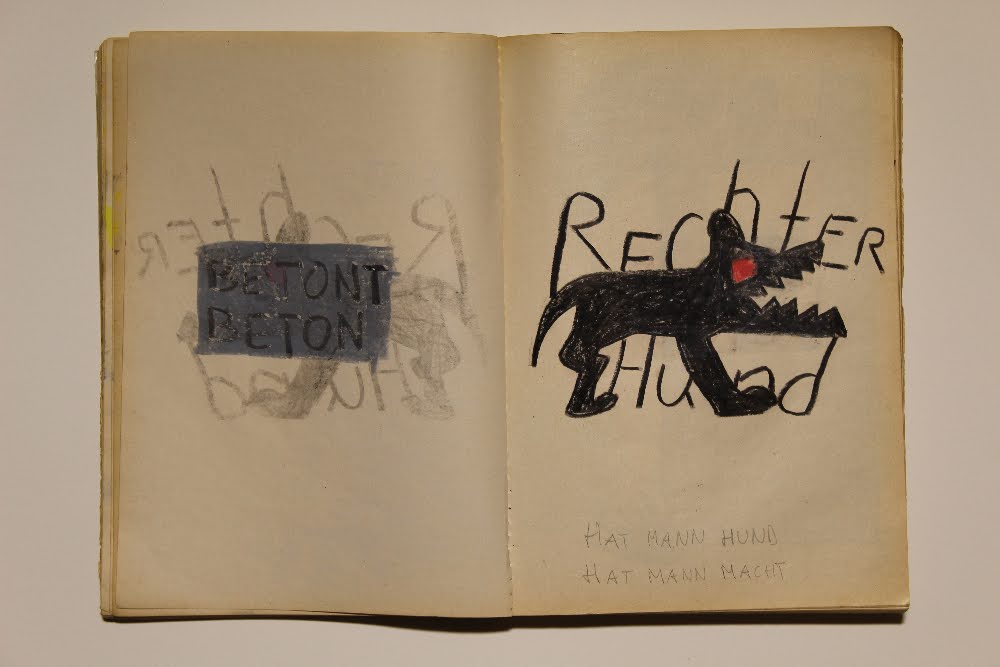 BETONT
BETON
REChtER
Hund
HAT MANN HUND
HAT MANN MACHT